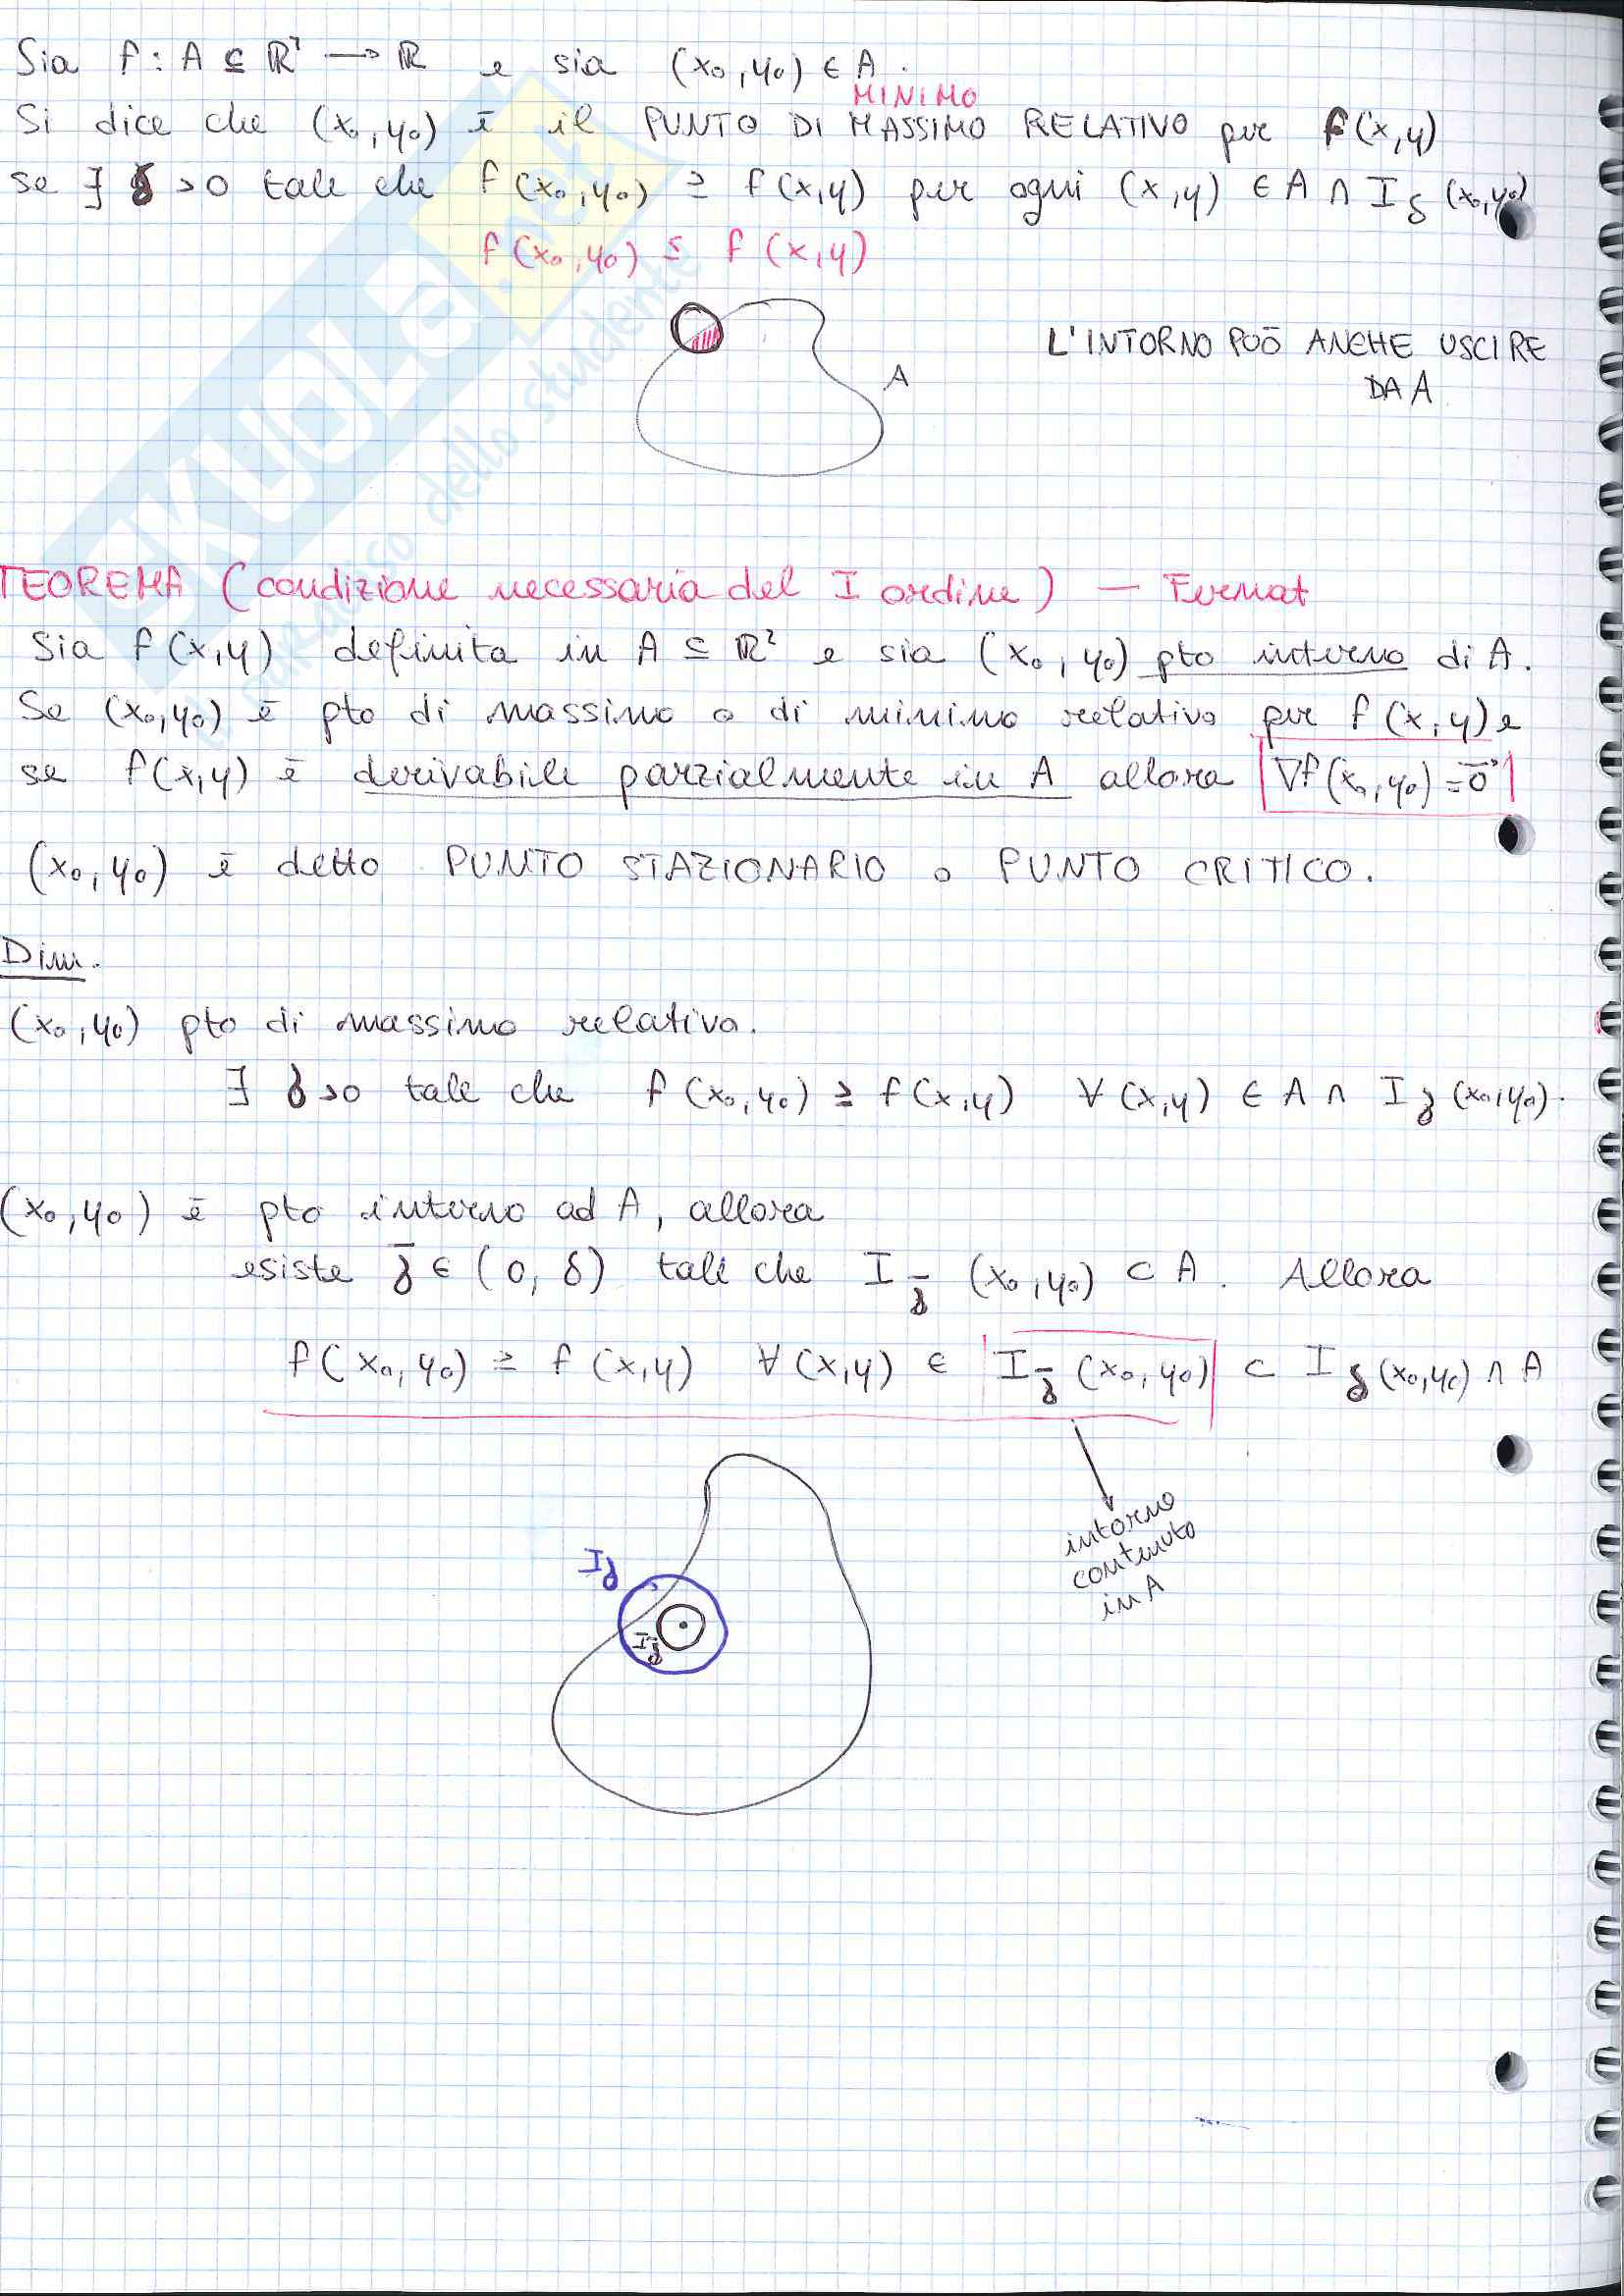 Sia f : A ⊆ ℝ² → ℝ e sia (x₀, y₀) ∈ A.
MINIMO
Si dice che (x₀, y₀) è il PUNTO DI MASSIMO RELATIVO per f(x,y)
se ∃ δ > 0 tale che f(x₀, y₀) ≥ f(x,y) per ogni (x,y) ∈ A ∩ I_δ (x₀,y₀)
f(x₀,y₀) ≤ f(x,y)
A
L'INTORNO PUÒ ANCHE USCIRE
DA A
TEOREMA (condizione necessaria del I ordine) — Fermat
Sia f(x,y) definita in A ⊆ ℝ² e sia (x₀, y₀) pto interno di A.
Se (x₀,y₀) è pto di massimo o di minimo relativo per f(x,y) e
se f(x,y) è derivabile parzialmente in A allora ∇f(x₀,y₀) = 0⃗
(x₀, y₀) è detto PUNTO STAZIONARIO o PUNTO CRITICO.
Dim.
(x₀, y₀) pto di massimo relativo.
∃ δ>0 tale che f(x₀,y₀) ≥ f(x,y) ∀(x,y) ∈ A ∩ I_δ (x₀,y₀).
(x₀, y₀) è pto interno ad A, allora
esiste δ̄ ∈ (0, δ) tale che I_δ̄ (x₀, y₀) ⊂ A. Allora
f(x₀, y₀) ≥ f(x,y) ∀(x,y) ∈ I_δ̄ (x₀, y₀) ⊂ I_δ (x₀,y₀) ∩ A
intorno
contenuto
in A
I_δ
I_δ̄
SKUOLA.net
dello studente